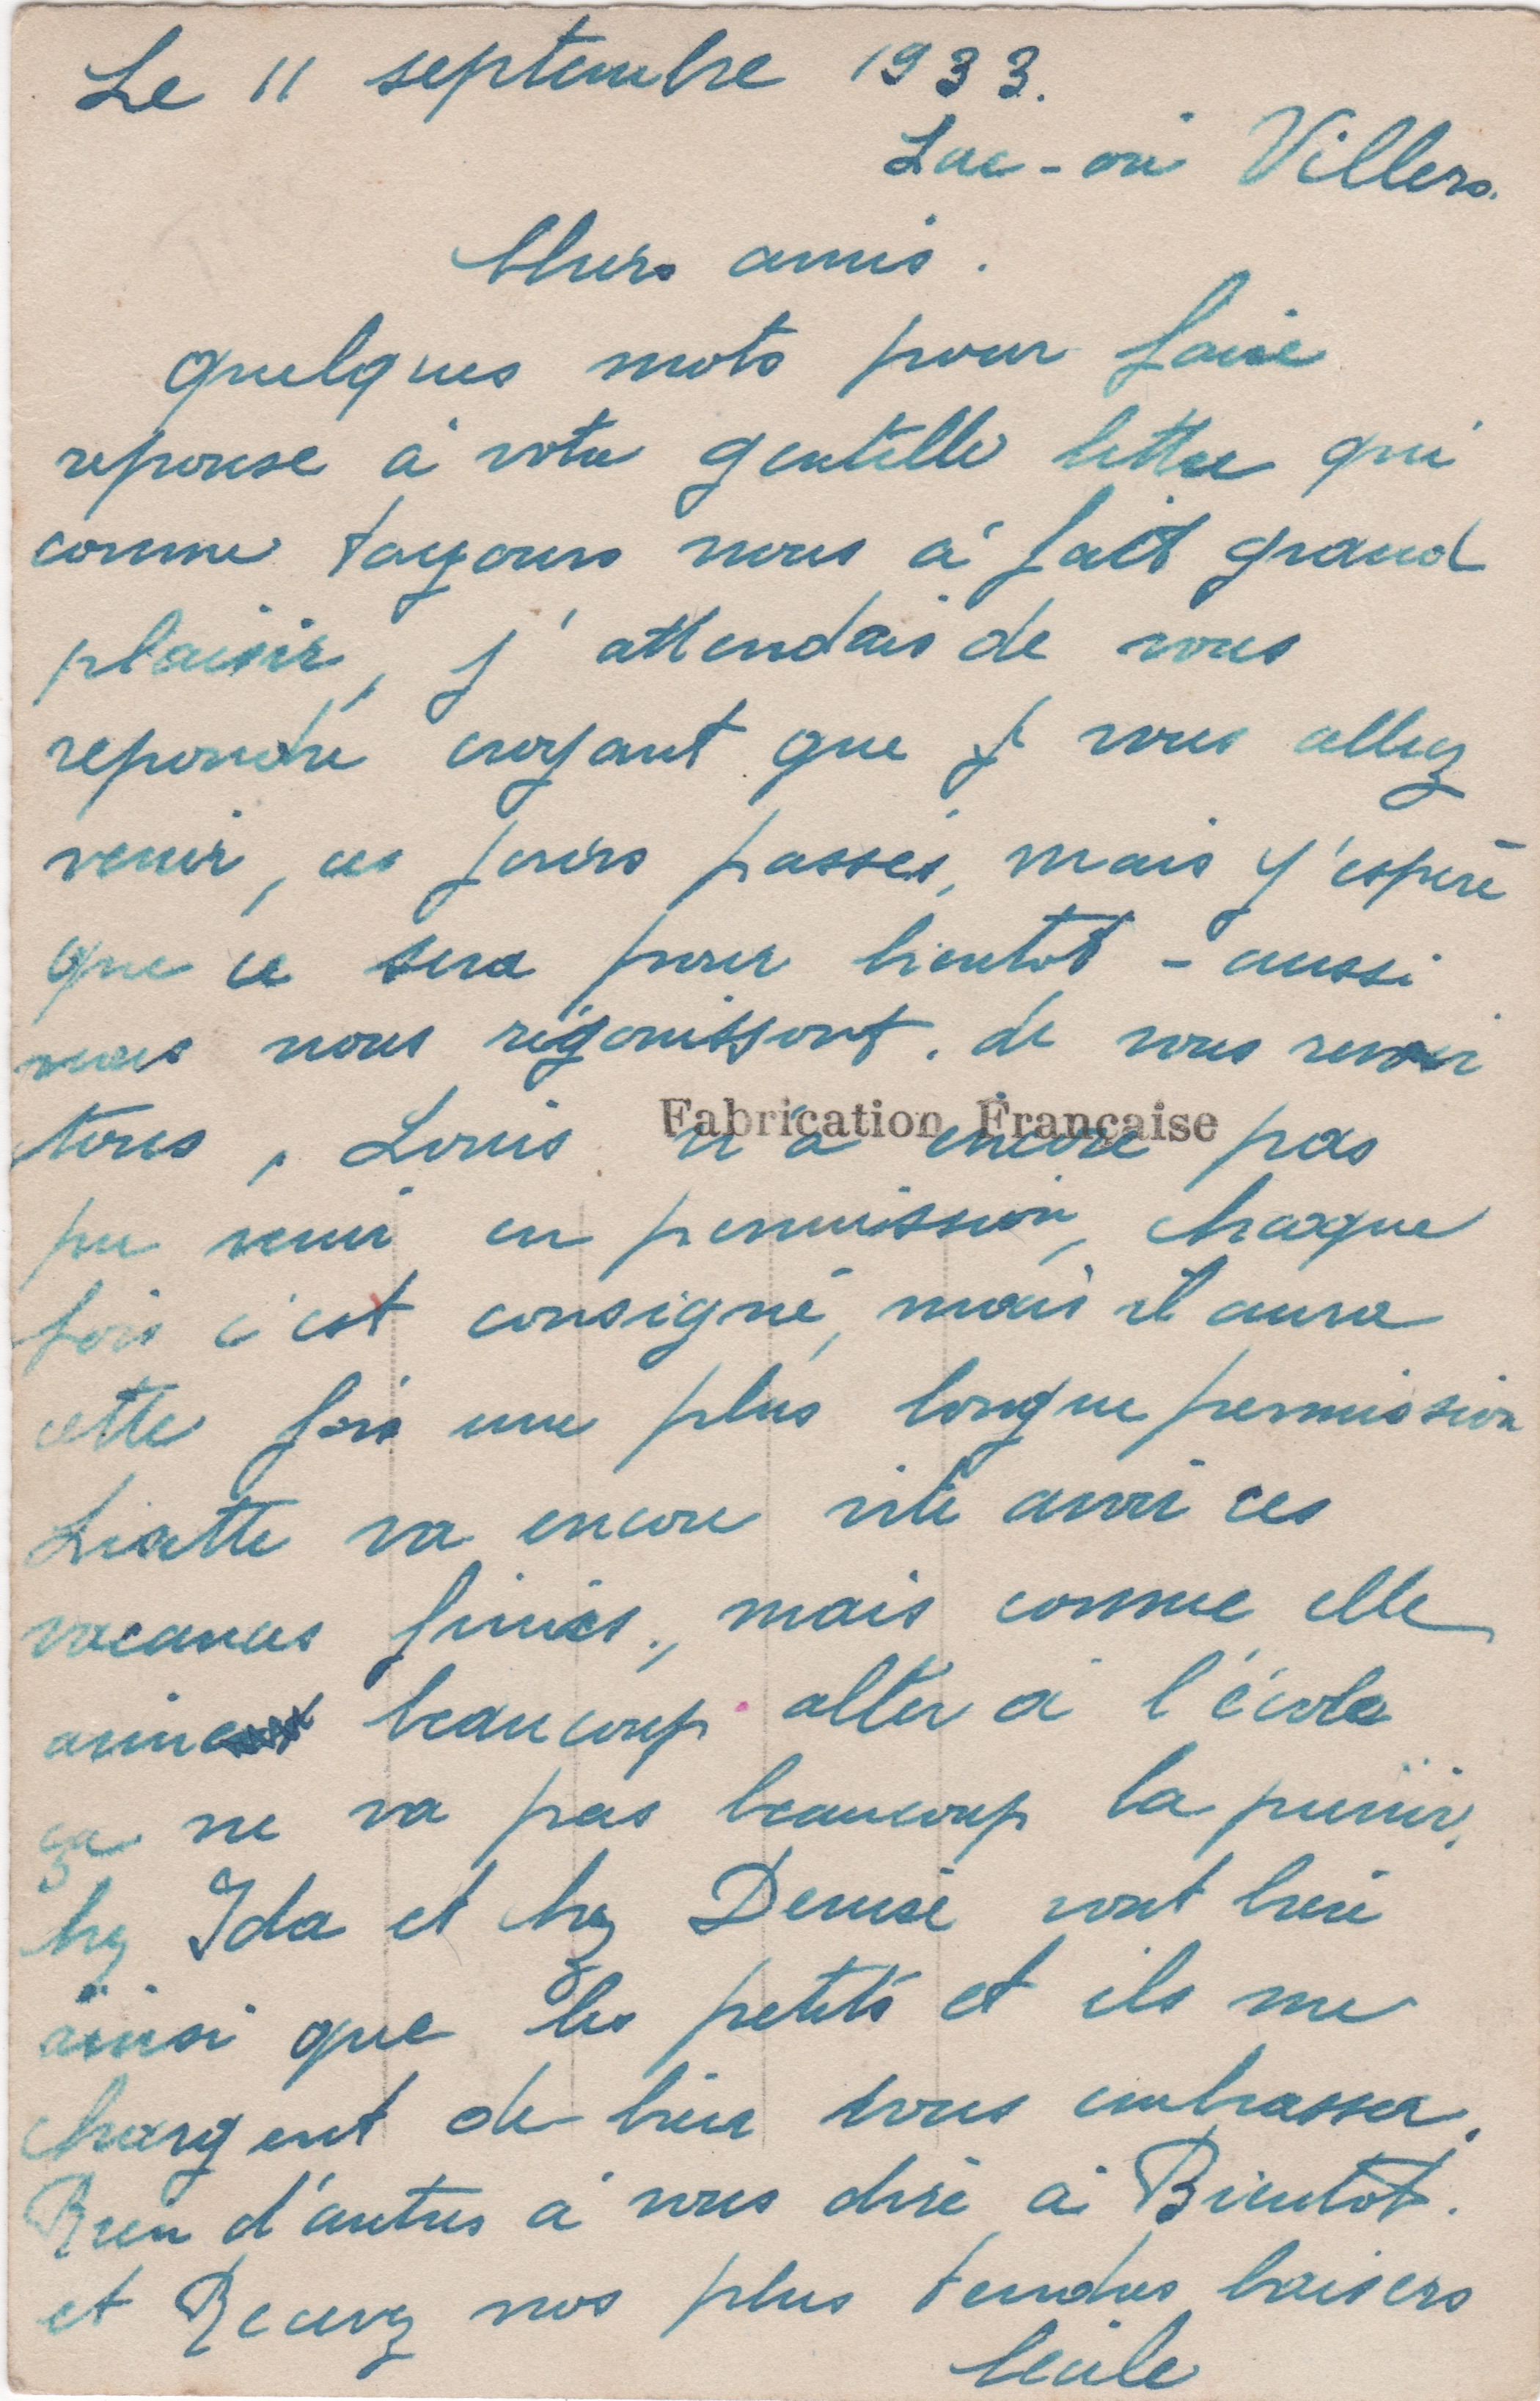 Le 11 septembre 1933.
Lac-ou Villers.
Chers amis.
quelques mots pour faire
reponse à votre gentille lettre qui
comme toujours nous à fait grand
plaisir, j'attendais de vous
repondre croyant que vous allez
venir, ces jours passés, mais j'espere
que ce sera pour bientot - aussi
nous nous réjouissont. de vous revoir
tous, Louis n'a encore pas
Fabrication Française
pu venir en permission, chaque
fois c'est consigné, mais il aura
cette fois une plus longue permission
Lisette va encore vite avoir ces
vacances finies., mais comme elle
aime beaucoup aller à l'école
ça ne va pas beaucoup la punir,
chez Ida et chez Denise vont bien
ainsi que les petits et ils me
chargent de bien vous embrasser.
Rien d'autres à vous dire à Bientôt.
et Recevez nos plus tendres baisers
Cécile